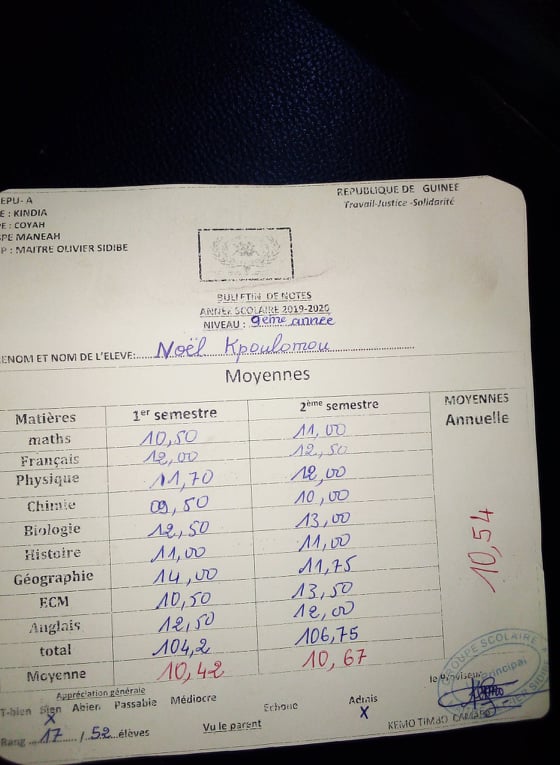 EPU- A
REPUBLIQUE DE GUINEE
E : KINDIA
Travail-Justice -Solidarité
E : COYAH
SPE MANEAH
P : MAITRE OLIVIER SIDIBE
BULLETIN DE NOTES
ANNEE SCOLAIRE 2019-2020
NIVEAU : 9ème année
RENOM ET NOM DE L'ELEVE: Noël Kpoulomou
Moyennes
Matières 1er semestre 2ème semestre MOYENNES Annuelle
maths 10,50 11,00
Français 12,00 12,50
Physique 11,70 12,00
Chimie 09,50 10,00
Biologie 12,50 13,00
Histoire 11,00 11,00
Géographie 14,00 11,75
ECM 10,50 13,50
Anglais 12,50 12,00
total 104,2 106,75
Moyenne 10,42 10,67
10,54
Appréciation générale
T-bien Bien Abien Passable Médiocre Echoue Admis
X X
le Proviseur
GROUPE SCOLAIRE
Principal
Rang 17 / 52 élèves
Vu le parent
KEMO TIMBO CAMARA